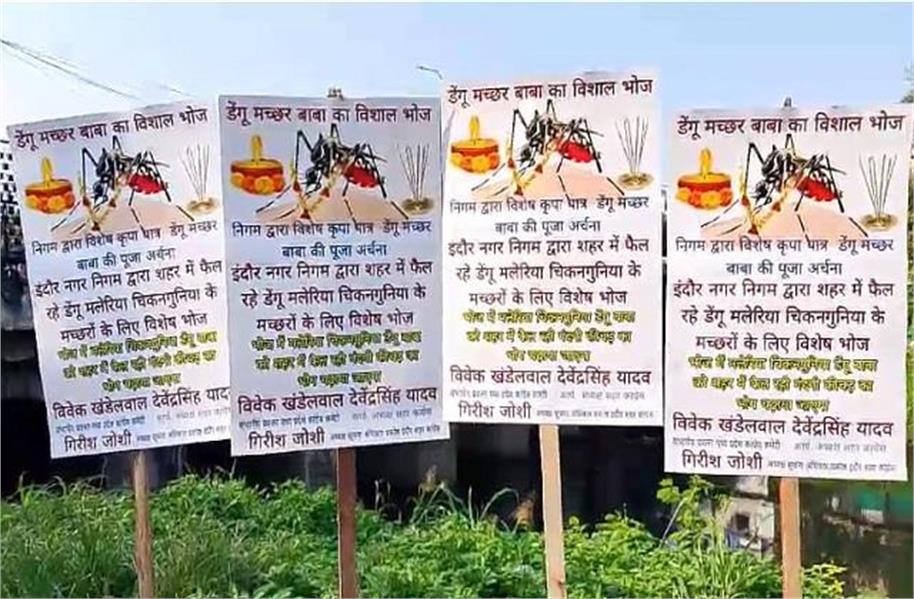 डेंगू मच्छर बाबा का विशाल भोज
निगम द्वारा विशेष कृपा पात्र डेंगू मच्छर
बाबा की पूजा अर्चना
इंदौर नगर निगम द्वारा शहर में फैल
रहे डेंगू मलेरिया चिकनगुनिया के
मच्छरों के लिए विशेष भोज
भोज में मलेरिया चिकनगुनिया डेंगू बाबा
को शहर में फैल रही गंदगी कीचड़ का
भोग चढ़ाया जाएगा
विवेक खंडेलवाल देवेंद्रसिंह यादव
गिरीश जोशी
डेंगू मच्छर बाबा का विशाल भोज
निगम द्वारा विशेष कृपा पात्र डेंगू मच्छर
बाबा की पूजा अर्चना
इंदौर नगर निगम द्वारा शहर में फैल
रहे डेंगू मलेरिया चिकनगुनिया के
मच्छरों के लिए विशेष भोज
भोज में मलेरिया चिकनगुनिया डेंगू बाबा
को शहर में फैल रही गंदगी कीचड़ का
भोग चढ़ाया जाएगा
विवेक खंडेलवाल देवेंद्रसिंह यादव
गिरीश जोशी
डेंगू मच्छर बाबा का विशाल भोज
निगम द्वारा विशेष कृपा पात्र डेंगू मच्छर
बाबा की पूजा अर्चना
इंदौर नगर निगम द्वारा शहर में फैल
रहे डेंगू मलेरिया चिकनगुनिया के
मच्छरों के लिए विशेष भोज
भोज में मलेरिया चिकनगुनिया डेंगू बाबा
को शहर में फैल रही गंदगी कीचड़ का
भोग चढ़ाया जाएगा
विवेक खंडेलवाल देवेंद्रसिंह यादव
गिरीश जोशी
डेंगू मच्छर बाबा का विशाल भोज
निगम द्वारा विशेष कृपा पात्र डेंगू मच्छर
बाबा की पूजा अर्चना
इंदौर नगर निगम द्वारा शहर में फैल
रहे डेंगू मलेरिया चिकनगुनिया के
मच्छरों के लिए विशेष भोज
भोज में मलेरिया चिकनगुनिया डेंगू बाबा
को शहर में फैल रही गंदगी कीचड़ का
भोग चढ़ाया जाएगा
विवेक खंडेलवाल देवेंद्रसिंह यादव
गिरीश जोशी